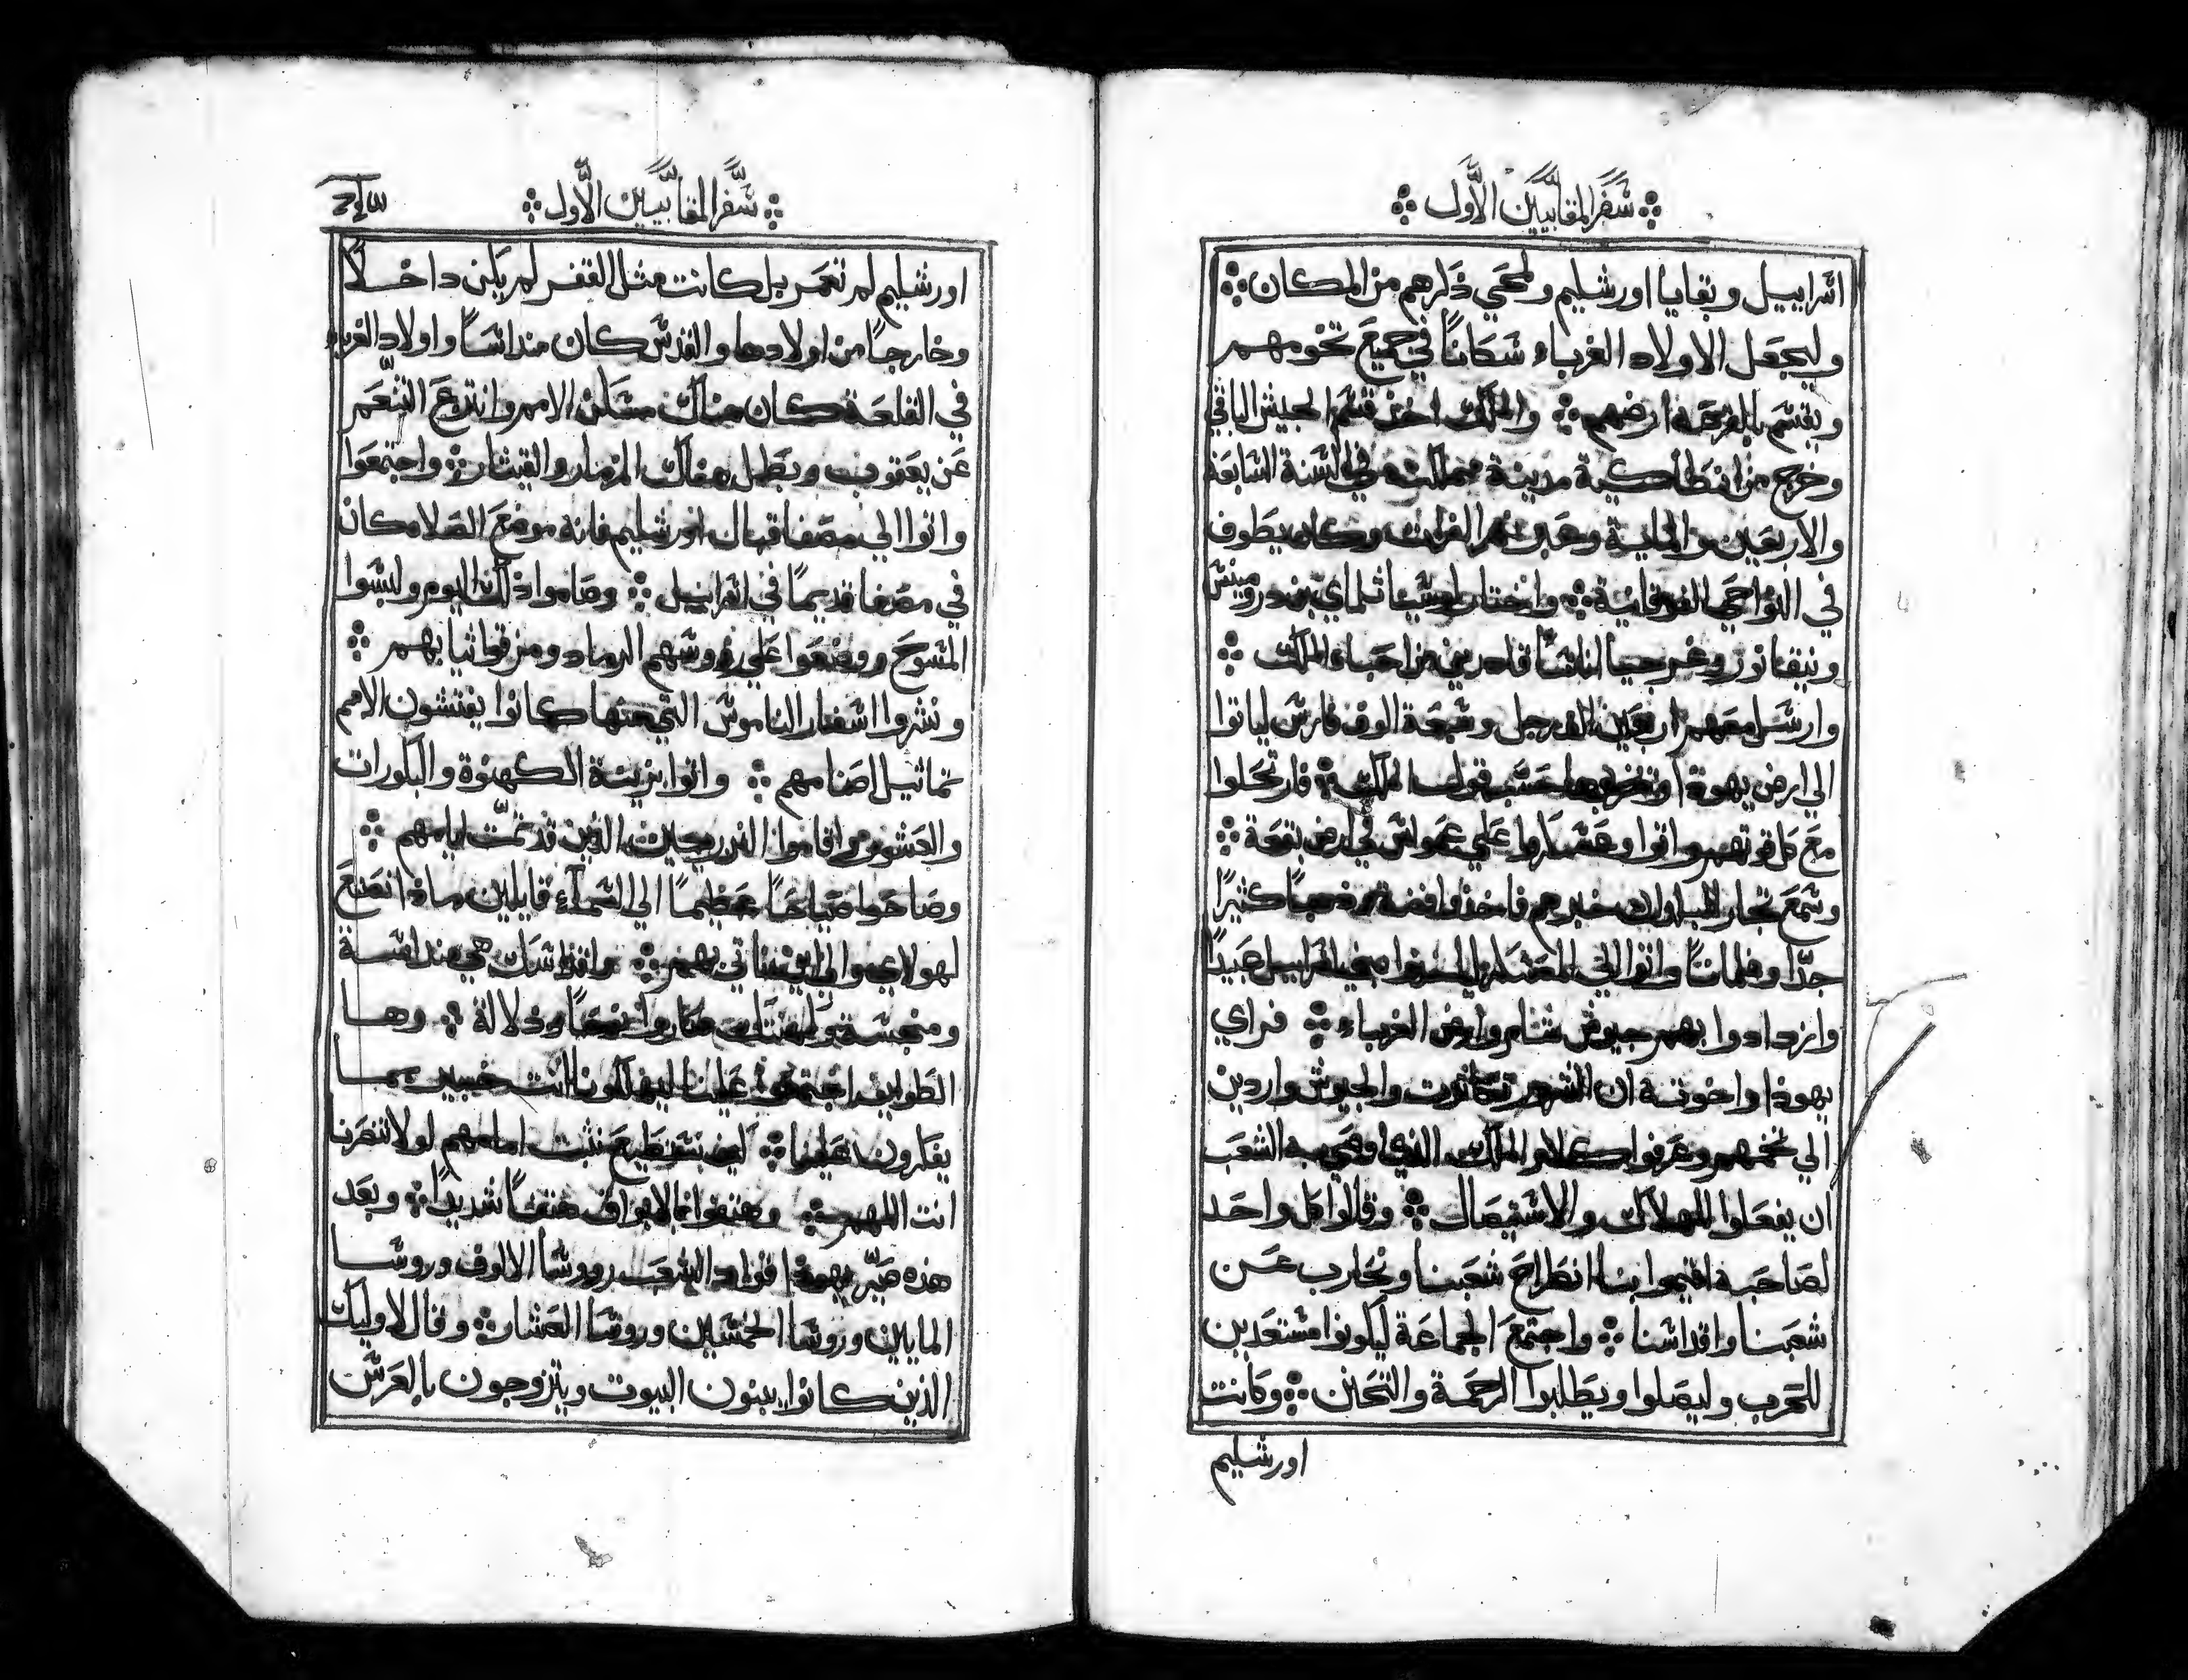 سفر المقابيين الاول
اسراييل وبقايا اورشليم ولمحي ذكرهم من المكان
وليجعل الاولاد الغرباء سكاناً في جميع تخومهم
ويقسم بالقرعة ارضهم والملك اخذ قسم الجيش الباقي
وخرج من انطاكية مدينة مملكته في السنة السابعة
والاربعين والماية وعبر نهر الفرات وكان يطوف
في النواحي الفوقانية واختار لوسيا ثلماي بن درومينس
ونيقانور وغرجيا اناساً قادرين من احباء الملك
وارسل معهم اربعين الف رجل وسبعة الوف فارس لياتوا
الي ارض يهوذة حسب قول الملك فارتحلوا
مع كل قوتهم واتوا وعسكروا علي عمواس في ارض بقعة
وسمع تجار البلدان خبرهم فاخذوا فضة وذهباً كثيراً
جدّا وغلماناً واتوا الي المعسكر لياخذوا بني اسراييل عبيداً
وازدادوا بهم جيوش شام وارض الغرباء فراي
يهوذا واخوته ان الشرور تكاثرت والجيوش واردين
الي تخمهم وعرفوا كلام الملك الذي اوصي به الشعب
ان يفعلوا الهلاك والاستيصال وقالوا كل واحد
لصاحبه اقيموا بنا انطراح شعبنا ونحارب عن
شعبنا واقداسنا واجتمع الجماعة ليكونوا مستعدين
للحرب وليصلوا ويطلبوا الرحمة والتحنن وكانت
اورشليم
سفر المقابيين الاول
اورشليم لم تعمر بل كانت مثل القفر لم يكن داخلاً
وخارجاً من اولادها والقدس كان منداساً واولاد الغرباء
في القلعة كان هناك مسكن الامم وانتزع التنعم
عن يعقوب وبطل هناك المزمار والقيثار واجتمعوا
واتوا الي مصفا قبال اورشليم فانه موضع الصلاه كان
في مصفا قديماً في اسراييل وصاموا ذلك اليوم ولبسوا
المسوح ووضعوا علي روسهم الرماد ومزقوا ثيابهم
ونشروا اسفار الناموس التي عنها كانوا يفتشون الامم
تماثيل اصنامهم واتوا بزينة الكهنوة والبكورات
والعشور واقاموا النذريين الذين قد تمّت ايامهم
وصاحوا صياحاً عظيماً الي السماء قايلين ماذا نصنع
لهولاي والي اين ناتي بهم واقداسك هي منداسة
ومنجسة وكهنتك صاروا نوحاً وذلالة وها
الطوايف اجتمعوا علينا ليهلكونا انت خبير بما
يفكرون علينا كيف نستطيع نثبت امامهم لولا تنصرنا
انت اللهم وهتفوا بالابواق هتفاً شديداً وبعد
هذه صيّر يهوذا قواد الشعب رووسا الالوف وروسا
المايين وروسا الخمسين وروسا العشار وقال لاوليك
الذين كانوا يبنون البيوت ويتزوجون بالعرس